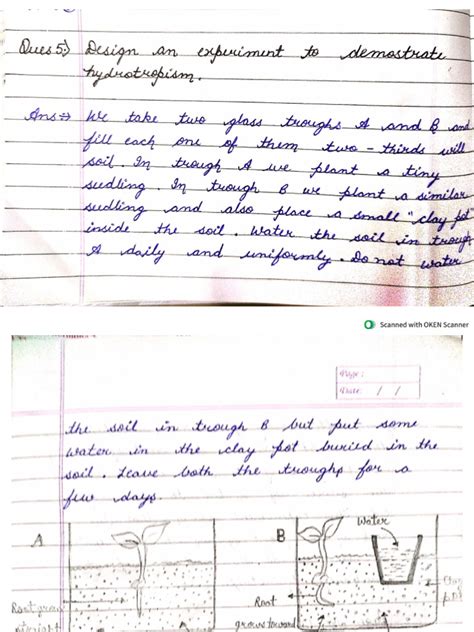 Ques 5) Design an experiment to demostrate
hydrotropism.
Ans ⇒ We take two glass troughs A and B and
fill each one of them two - thirds will
soil. In trough A we plant a tiny
seedling. In trough B we plant a similar
seedling and also place a small "clay pot"
inside the soil. Water the soil in trough
A daily and uniformly. Do not water
Scanned with OKEN Scanner
Page:
Date: / /
the soil in trough B but put some
water in the clay pot buried in the
soil. Leave both the troughs for a
few days.
Water
A
B
Root
Clay
pot
Root grow
grows toward